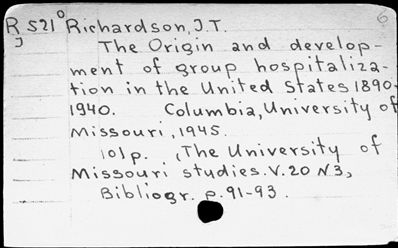 R 521° Richardson, J.T. 6
J The Origin and develop-
ment of group hospitaliza-
tion in the United States 1890-
1940. Columbia, University of
Missouri, 1945.
101p. (The University of
Missouri studies. V.20 N.3,
Bibliogr. p. 91-93.